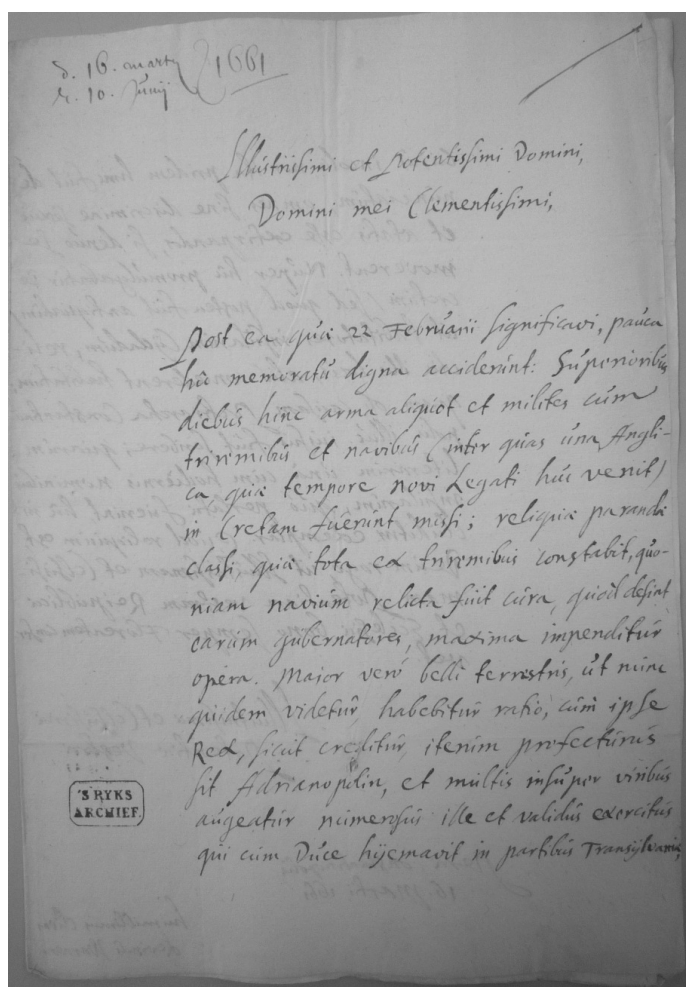 d. 16. marty 1661
r. 10. Junij
Illustrissimi et Potentissimi Domini,
Domini mei Clementissimi,
Post ea quæ 22 Februarii significavi, pauca
hic memoratu digna acciderunt: Superioribus
diebus hinc arma aliquot et milites cum
triremibus et navibus (inter quas una Angli-
ca quæ tempore novi Legati huc venit)
in Cretam fuerunt missi; reliquiæ parandæ
classi, quæ tota ex triremibus constabit, quo-
niam navium relicta fuit cura, quod desint
earum gubernatores, maxima impenditur
opera. Maior vero belli terrestris, ut nunc
quidem videtur, habebitur ratio, cum ipse
Rex, sicut creditur, iterum profecturus
sit Adrianopolin, et multis insuper viribus
augeatur numerosus ille et validus exercitus
qui cum Duce hyemavit in partibus Transylvaniæ,
'S RYKS
ARCHIEF.